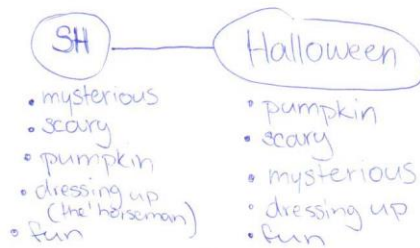 SH
• mysterious
• scary
• pumpkin
• dressing up
(the horseman)
• fun
Halloween
• pumpkin
• scary
• mysterious
• dressing up
• fun